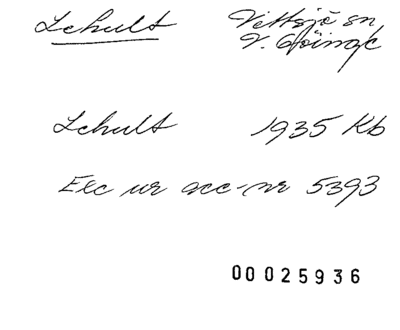 Schult Vittsjö sn
V. Göinge
Schult 1935 Kb
Exc ur acc-nr 5393
00025936